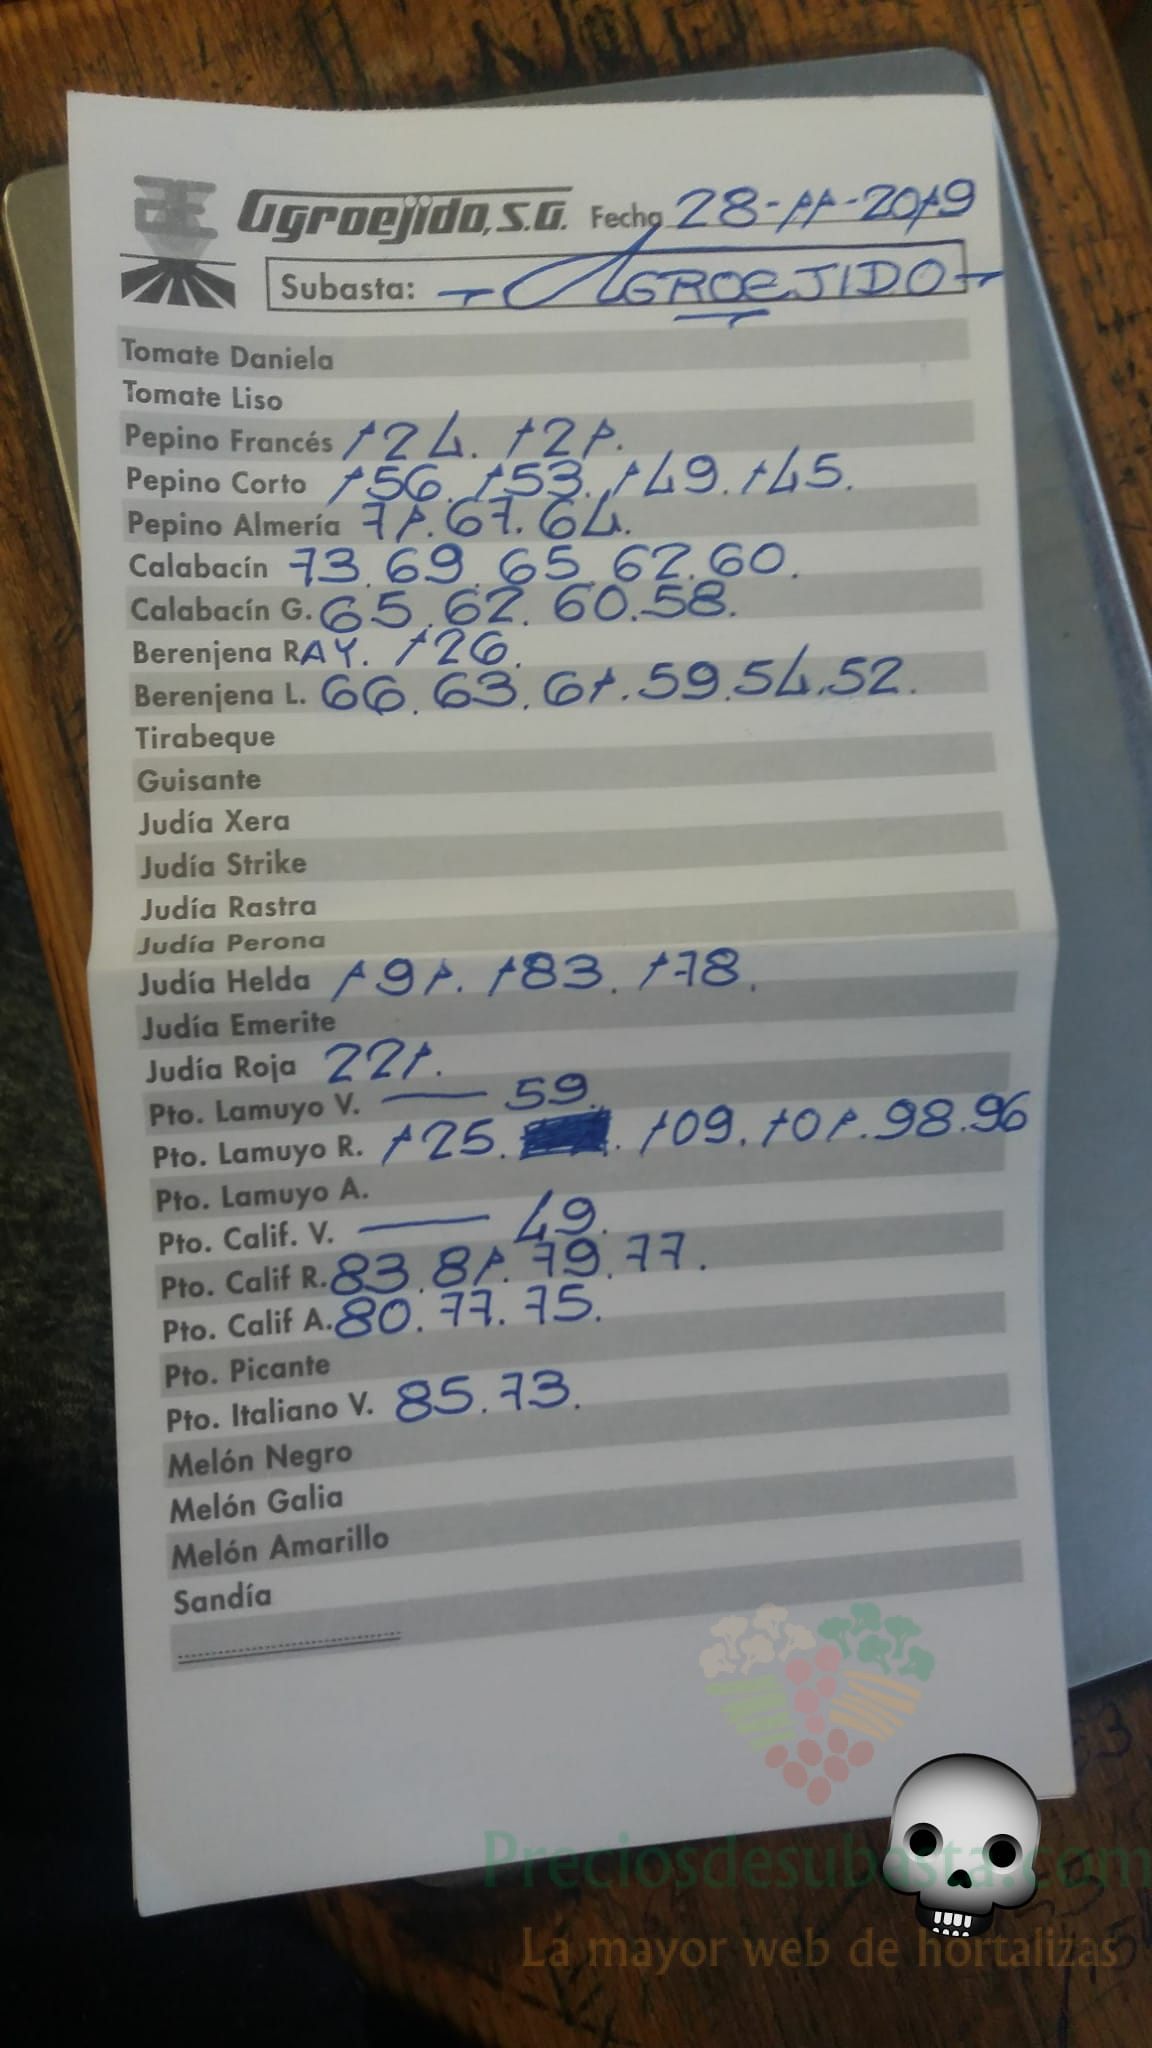 Agroejido, S.A. Fecha 28-11-2019
Subasta: - AGROEJIDO -
Tomate Daniela
Tomate Liso
Pepino Francés 124. 121.
Pepino Corto 156. 153. 149. 145.
Pepino Almería 71. 67. 64.
Calabacín 73. 69. 65. 62. 60.
Calabacín G. 65. 62. 60. 58.
Berenjena RAY. 126.
Berenjena L. 66. 63. 61. 59. 54. 52.
Tirabeque
Guisante
Judía Xera
Judía Strike
Judía Rastra
Judía Perona
Judía Helda 191. 183. 178.
Judía Emerite
Judía Roja 221.
Pto. Lamuyo V. — 59.
Pto. Lamuyo R. 125. 109. 101. 98. 96
Pto. Lamuyo A.
Pto. Calif. V. — 49.
Pto. Calif R. 83. 81. 79. 77.
Pto. Calif A. 80. 77. 75.
Pto. Picante
Pto. Italiano V. 85. 73.
Melón Negro
Melón Galia
Melón Amarillo
Sandía
Preciosdesubasta.com
La mayor web de hortalizas